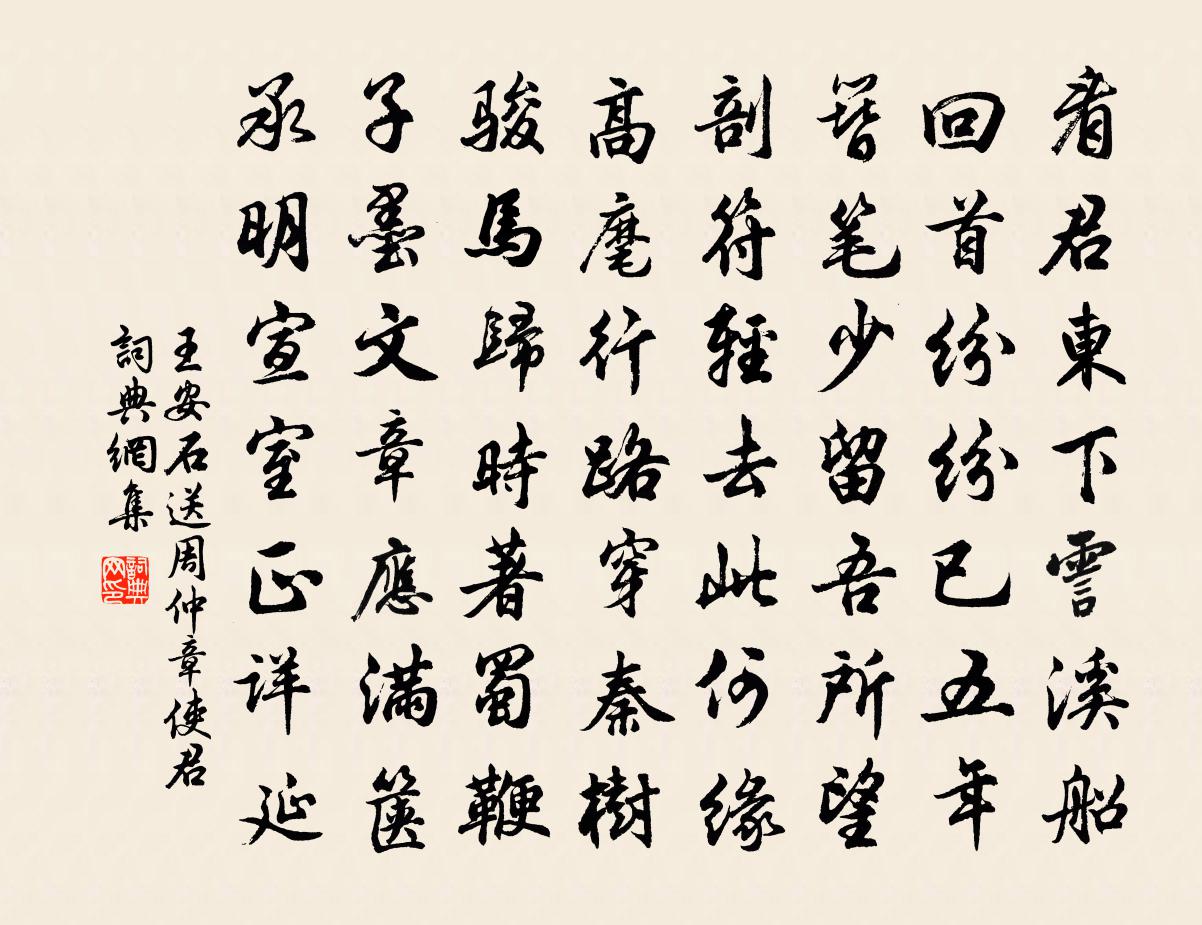 看君東下霅溪船
回首紛紛已五年
簪笔少留吾所望
剖符輕去此何缘
高麾行路穿秦樹
駿馬歸時著蜀鞭
子墨文章應满箧
承明宣室正详延
王安石送周仲章使君
詞典網集
詞典网印